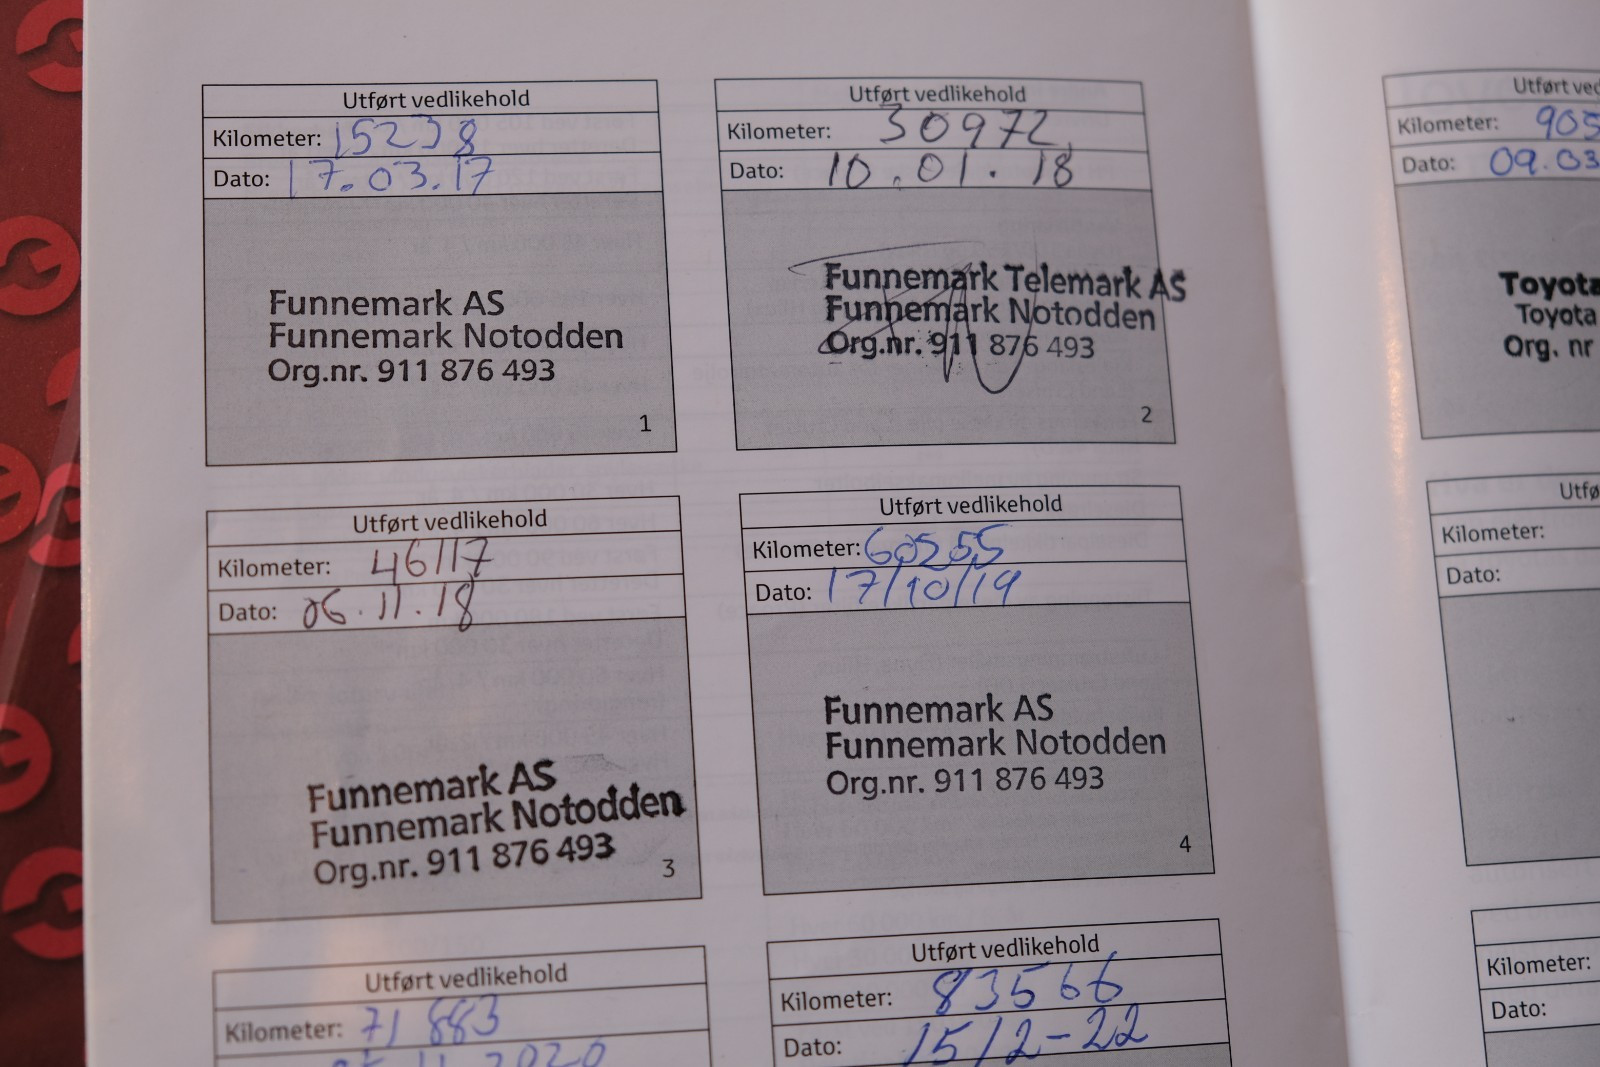 Utført vedlikehold
Kilometer: 15238
Dato: 17.03.17
Funnemark AS
Funnemark Notodden
Org.nr. 911 876 493
1
Utført vedlikehold
Kilometer: 30972
Dato: 10.01.18
Funnemark Telemark AS
Funnemark Notodden
Org.nr. 911 876 493
2
Utført vedlikehold
Kilometer: 46117
Dato: 06.11.18
Funnemark AS
Funnemark Notodden
Org.nr. 911 876 493
3
Utført vedlikehold
Kilometer: 60255
Dato: 17/10/19
Funnemark AS
Funnemark Notodden
Org.nr. 911 876 493
4
Utført vedlikehold
Kilometer: 71883
2020
Utført vedlikehold
Kilometer: 83566
Dato: 15/2-22
Utført
Kilometer: 905
Dato: 09.03
Toyota
Toyota
Org. nr
Kilometer:
Dato:
Kilometer:
Dato: